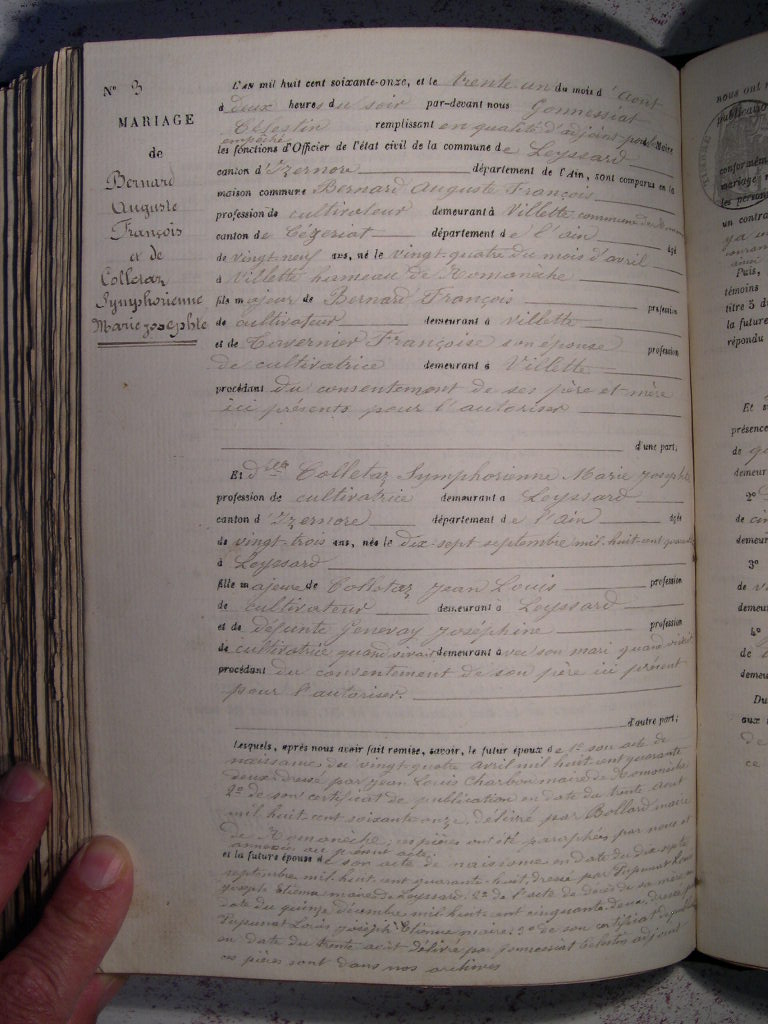 N° 3
MARIAGE
de
Bernard
Auguste
François
et de
Colletaz
Symphorienne
Marie Josephte
L'an mil huit cent soixante-onze, et le trente un du mois d'août
à deux heures du soir par-devant nous Gonnessiat
Célestin remplissant en qualité d'adjoint pour le Maire
empêché
les fonctions d'Officier de l'état civil de la commune de Leyssard
canton d'Izernore département de l'Ain, sont comparus en la
maison commune Bernard Auguste François
profession de cultivateur demeurant à Villette commune de
canton de Cézeriat département de l'ain âgé
de vingt-neuf ans, né le vingt-quatre du mois d'avril
à Villette hameau de Romanèche
fils majeur de Bernard François profession
de cultivateur demeurant à Villette
et de Tavernier Françoise son épouse profession
de cultivatrice demeurant à Villette
procédant du consentement de ses père et mère
ici présents pour l'autoriser
d'une part;
Et dlle Colletaz Symphorienne Marie Josephte
profession de cultivatrice demeurant à Leyssard
canton d'Izernore département de l'ain âgée
de vingt-trois ans, née le dix-sept septembre mil-huit-cent
à Leyssard
fille majeure de Colletaz Jean Louis profession
de cultivateur demeurant à Leyssard
et de défunte Genevay Joséphine profession
de cultivatrice quand vivait demeurant avec son mari quand vivait
procédant du consentement de son père ici présent
pour l'autoriser.
d'autre part;
Lesquels, après nous avoir fait remise, savoir, le futur époux de 1° son acte de
naissance du vingt-quatre avril mil huit cent quarante
deux dressé par Jean Louis Charbon maire de Romanèche
2° de son certificat de publication en date du trente août
mil huit cent soixante-onze, délivré par Bollard maire
de Romanèche; ces pièces ont été paraphées par nous et
annexées au présent acte;
et la future épouse de son acte de naissance en date du dix sept
septembre mil huit cent quarante-huit, dressé par Tupunat Louis
Joseph Etienne maire de Leyssard. 2° de l'acte de décès de sa mère en
date du quinze décembre mil huit cent cinquante deux dressé par
Tupunat Louis Joseph Etienne maire; 3° de son certificat
en date du trente août délivré par Gonnessiat Célestin adjoint
ces pièces sont dans nos archives
nous ont
publication
conformément
mariage
les personnes
un contrat
Puis,
témoins
titre 5 du
la future
répondu
Et
présence
de
demeur
2°
de cin
demeur
3°
de
demeur
4°
de
demeu
Du
aux
de
ce